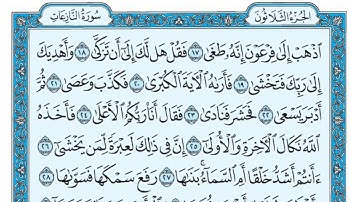 الجزء الثلاثون سورة النازعات
اذهب إلى فرعون إنه طغى ١٧ فقل هل لك إلى أن تزكى ١٨ وأهديك
إلى ربك فتخشى ١٩ فأراه الآية الكبرى ٢٠ فكذب وعصى ٢١ ثم
أدبر يسعى ٢٢ فحشر فنادى ٢٣ فقال أنا ربكم الأعلى ٢٤ فأخذه
الله نكال الآخرة والأولى ٢٥ إن في ذلك لعبرة لمن يخشى ٢٦
ءأنتم أشد خلقا أم السماء بناها ٢٧ رفع سمكها فسواها ٢٨